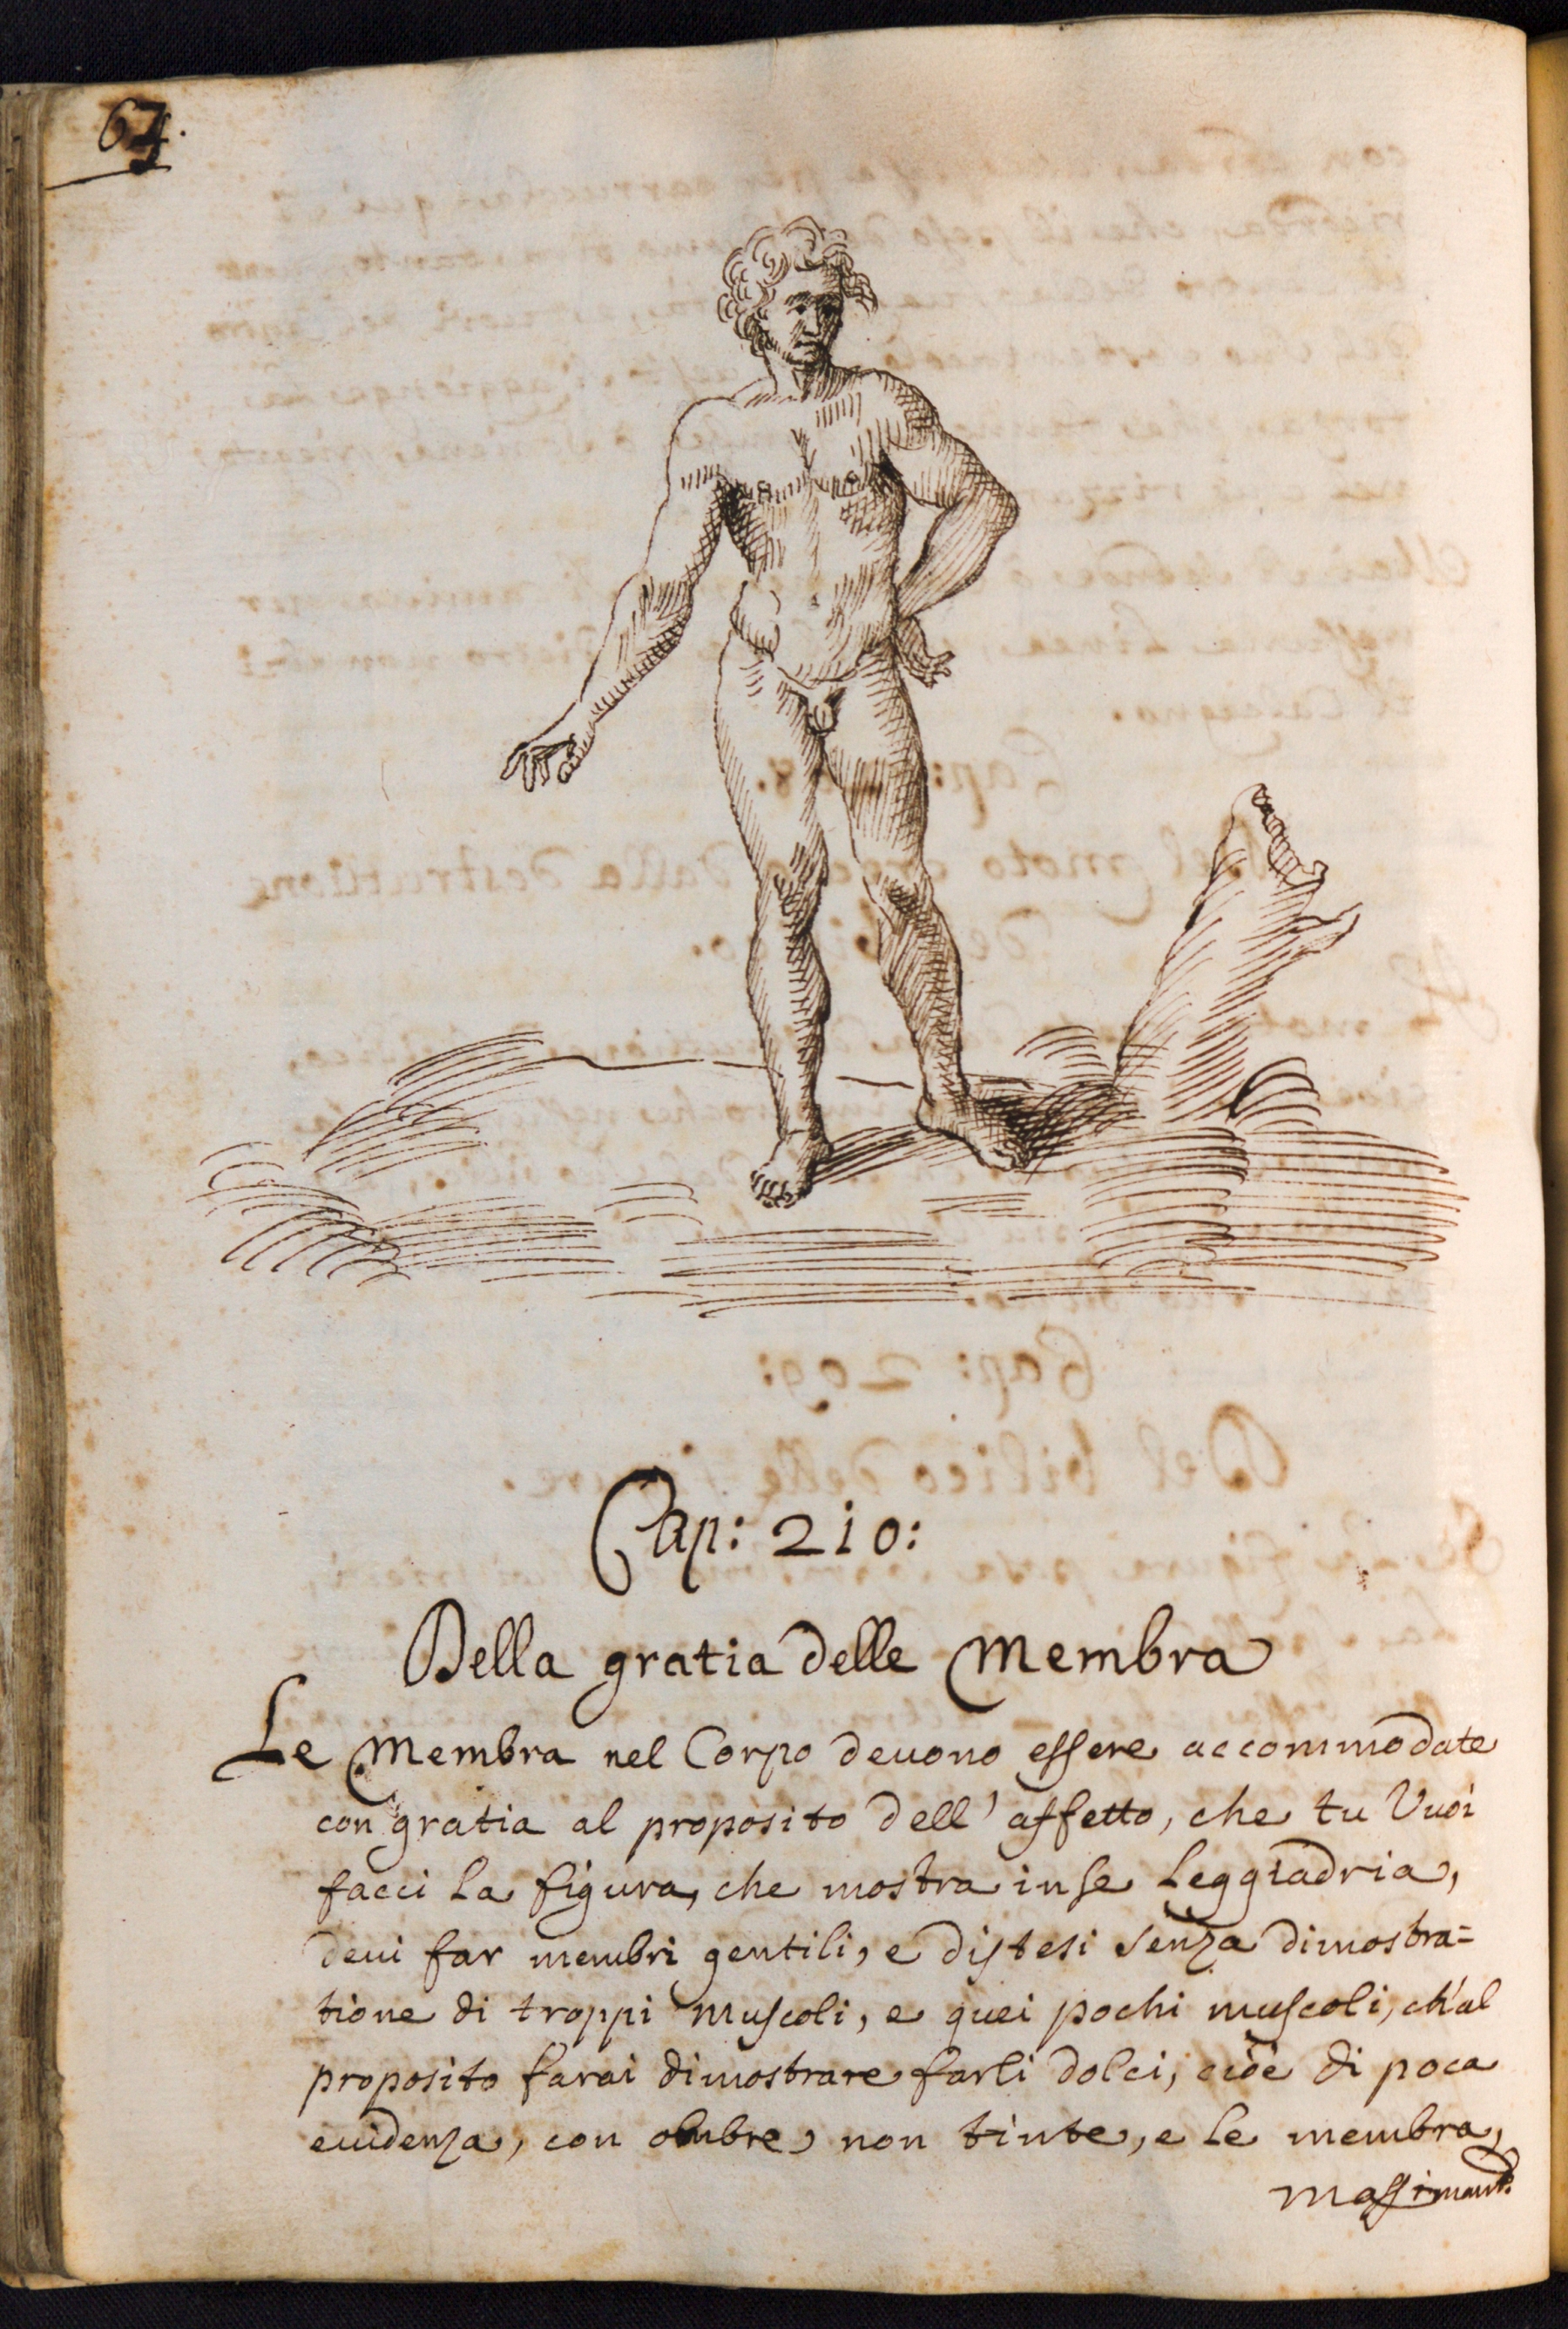 Cap: 210:
Della gratia delle Membra
Le Membra nel Corpo deuono essere accommodate
con gratia al proposito dell' affetto, che tu Vuoi
facci la figura, che mostra in se Leggiadria,
deui far membri gentili, e distesi senza dimostra=
tione di troppi Muscoli, e quei pochi muscoli, ch'al
proposito farai dimostrare farli dolci, cioè di poca
euidenza, con ombre, non tinte, e le membra,